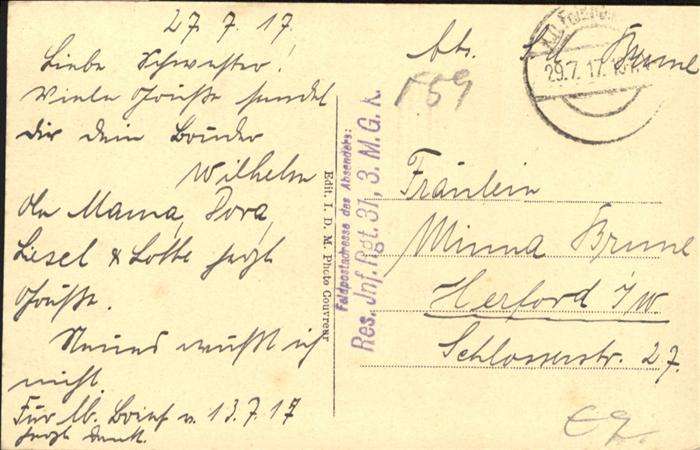 27. 7. 17.
Liebe Schwester!
Viele Grüße sendet
Dir dein Bruder
Wilhelm
Mama, Dora,
Liesel & Lotte herzl.
Grüße.
Neues weiß ich
nicht.
Für lb. Brief v. 13.7.17
herzl. Dank.
Edit. I. D. M. Photo Couvreur
Feldpostadresse des Absenders:
Res. Jnf. Rgt. 31, 3. M. G. K.
Abs. Brune
29.7.17.
F59
Fräulein
Minna Brune
Herford i/W
Schlosserstr. 27.